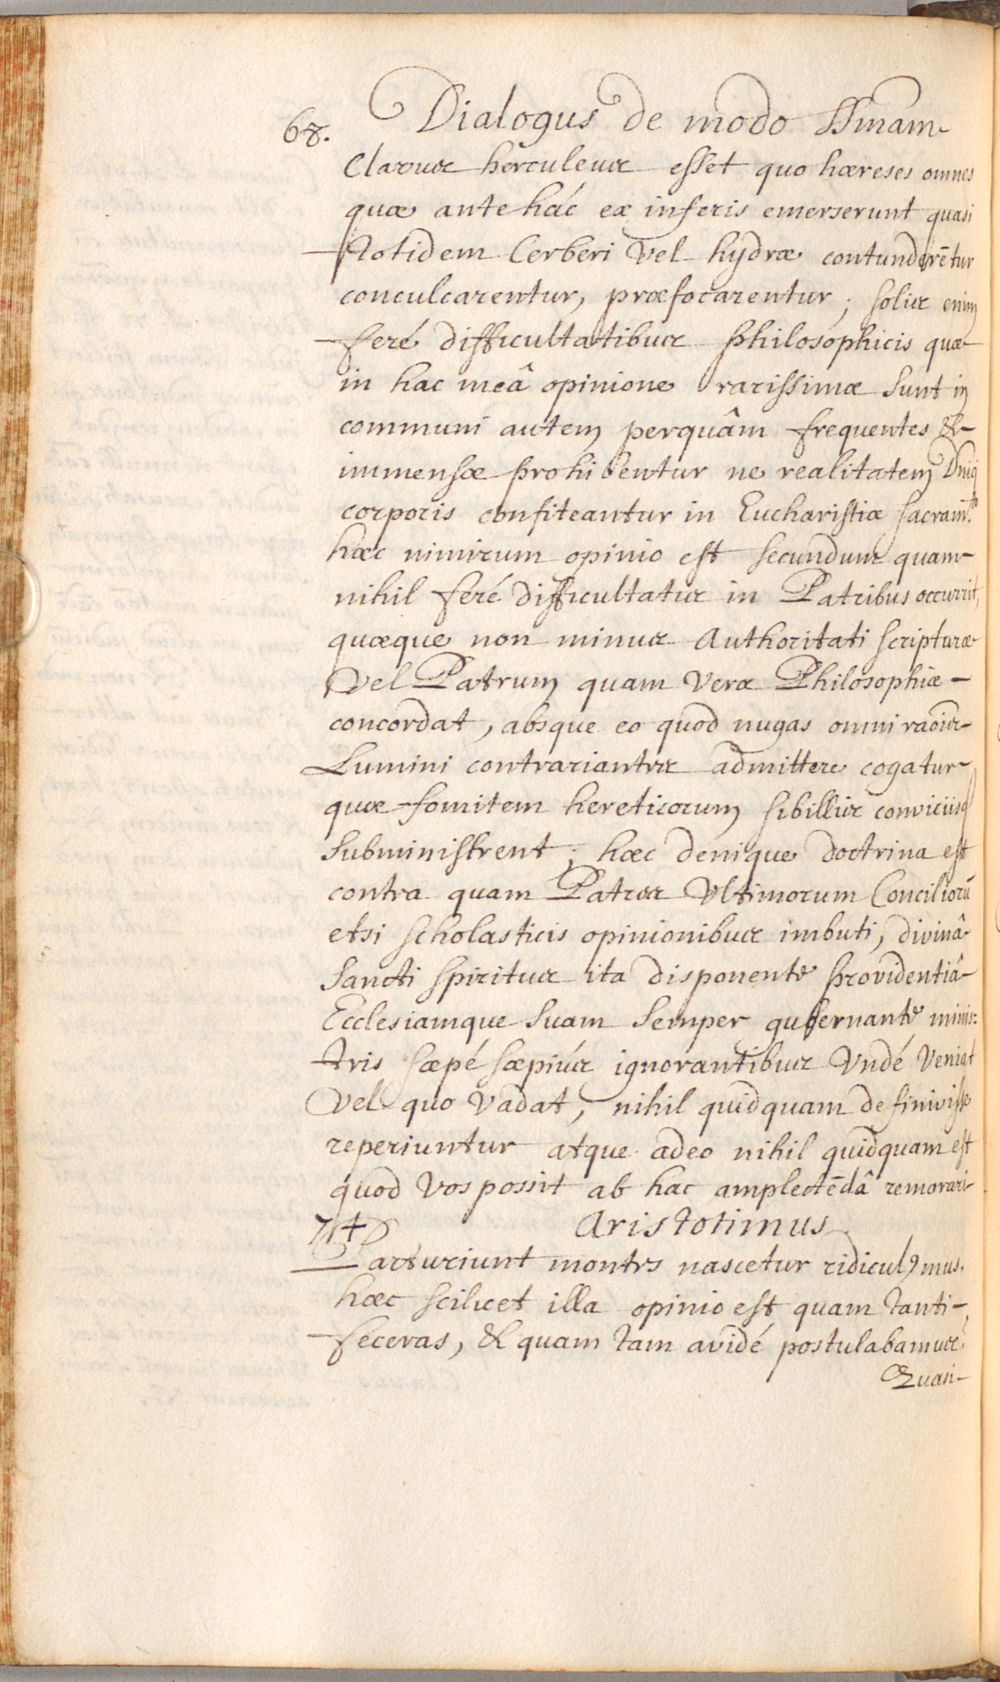 68. Dialogus de modo SSmam
Clavus herculeus esset quo hæreses omnes
quæ antehác ex inferis emerserunt quasi
totidem Cerberi Vel hydræ contunderẽtur
conculcarentur, præfocarentur; solis enim
feré difficultatibus philosophicis quæ
in hac meâ opinione rarissimæ Sunt in
communi autem perquâm frequentes &
immensæ prohibentur ne realitatem
corporis confiteantur in Eucharistiæ sacramto.
hæc nimirum opinio est secundum quam
nihil feré difficultatis in Patribus occurrit,
quæque non minus Authoritati scripturæ
Vel Patrum quam Veræ Philosophiæ
concordat, absque eo quod nugas omni raõis
Lumini contrariantes admittere cogatur
quæ fomitem hereticorum sibillis conviciisq
Subministrent; hæc denique doctrina est
contra quam Patres Vltimorum Conciliorũ
etsi scholasticis opinionibus imbuti, divinâ
Sancti spiritus ita disponente providentiâ
Ecclesiamque Suam Semper gubernante minis:
tris sæpé sæpiús ignorantibus Vndé Veniat
Vel quo Vadat, nihil quidquam definivisse
reperiuntur atque adeo nihil quidquam est
quod Vos possit ab hac amplectẽdâ remorari
74 Aristotimus
Parturiunt montes nascetur ridicul9 mus.
hæc scilicet illa opinio est quam tanti
feceras, & quam tam avidé postulabamus
Quasi